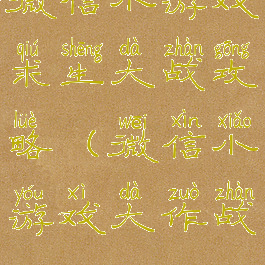 微信小游戏
qiú shēng dà zhàn gōng
求生大战攻
lüè wēi xìn xiǎo
略（微信小
yóu xì dà zuò zhàn
游戏大作战